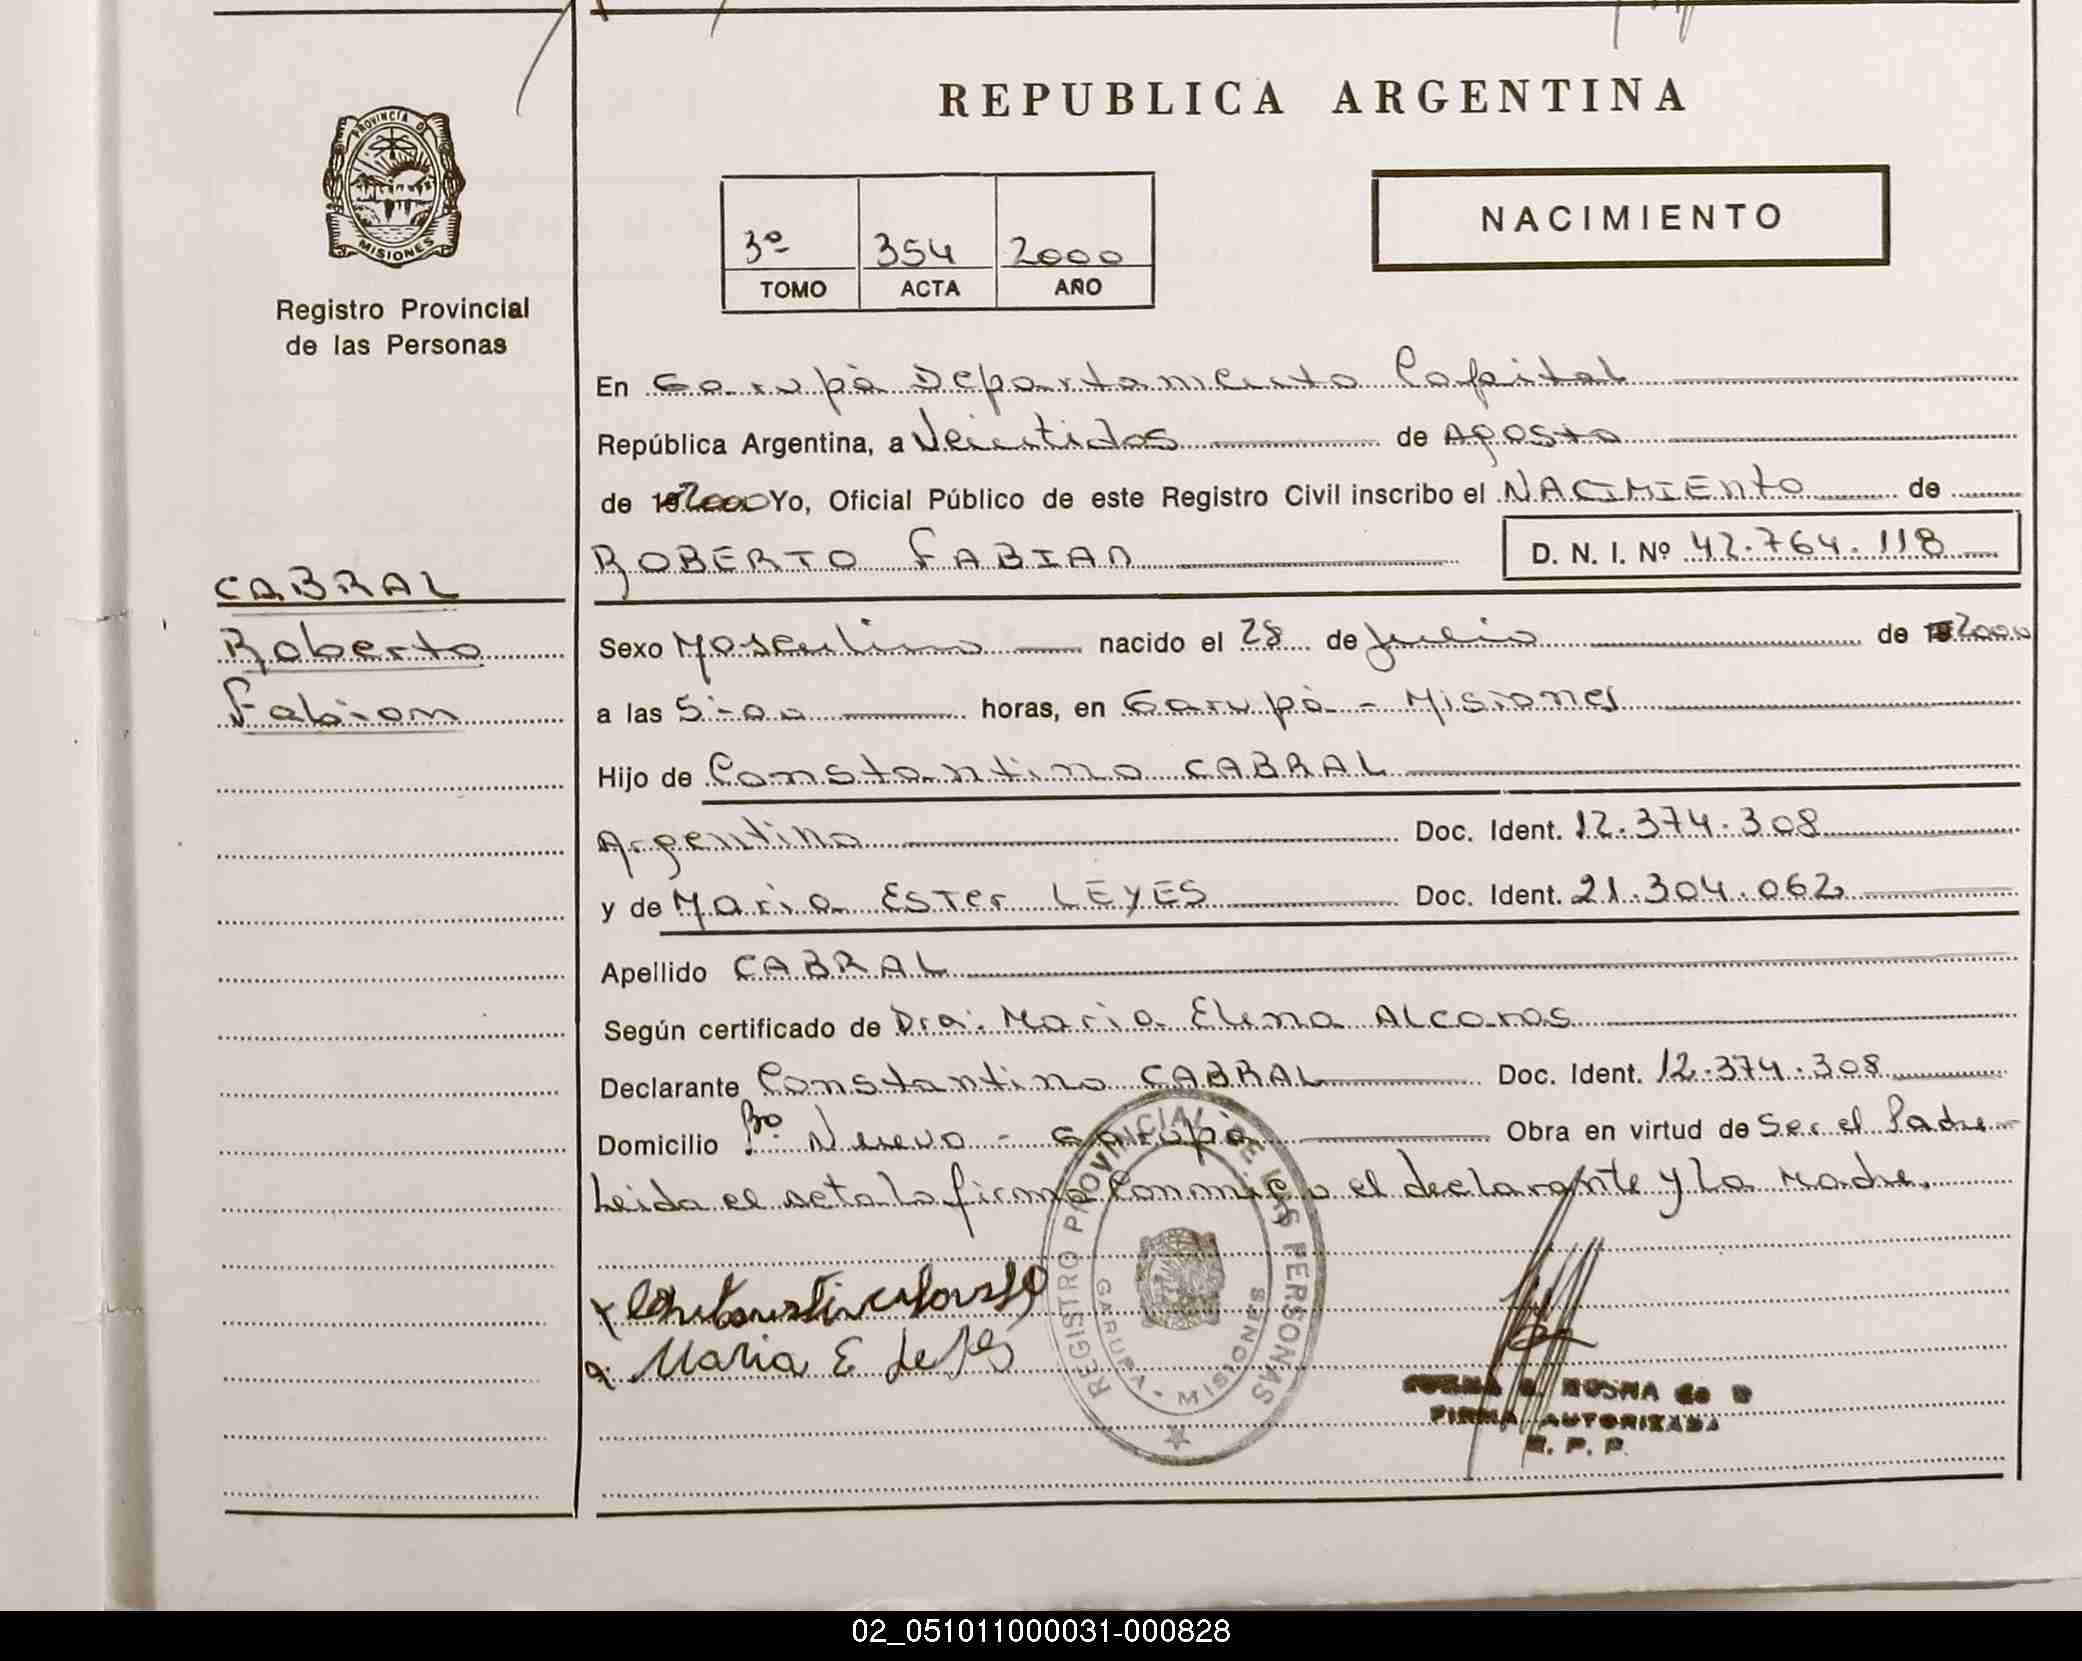 REPUBLICA ARGENTINA
PROVINCIA DE
MISIONES
Registro Provincial
de las Personas
3º 354 2000
TOMO ACTA AÑO
NACIMIENTO
En Garupà Departamento Capital
República Argentina, a Veintidos de Agosto
de 192000 Yo, Oficial Público de este Registro Civil inscribo el NACIMIENTO de
ROBERTO FABIAN D. N. I. Nº 42.764.118
CABRAL
Roberto
Fabian
Sexo Masculino nacido el 28 de Julio de 192000
a las 5:00 horas, en Garupà - Misiones
Hijo de Constantino CABRAL
Argentino Doc. Ident. 12.374.308
y de Maria Ester LEYES Doc. Ident. 21.304.062
Apellido CABRAL
Según certificado de Dra. Maria Elena ALCARAS
Declarante Constantino CABRAL Doc. Ident. 12.374.308
Domicilio Bº Nuevo - Garupà Obra en virtud de Ser el Padre
Leida el acta la firma conmigo el declarante y La Madre.
REGISTRO PROVINCIAL DE LAS PERSONAS
GARUPA - MISIONES
Maria E Leyes
FIRMA AUTORIZADA
R. P. P.
02_051011000031-000828